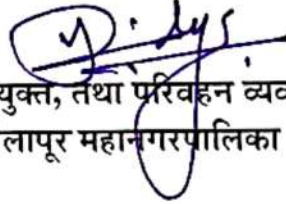 युक्त, तथा परिवहन व्यव
लापूर महानगरपालिका